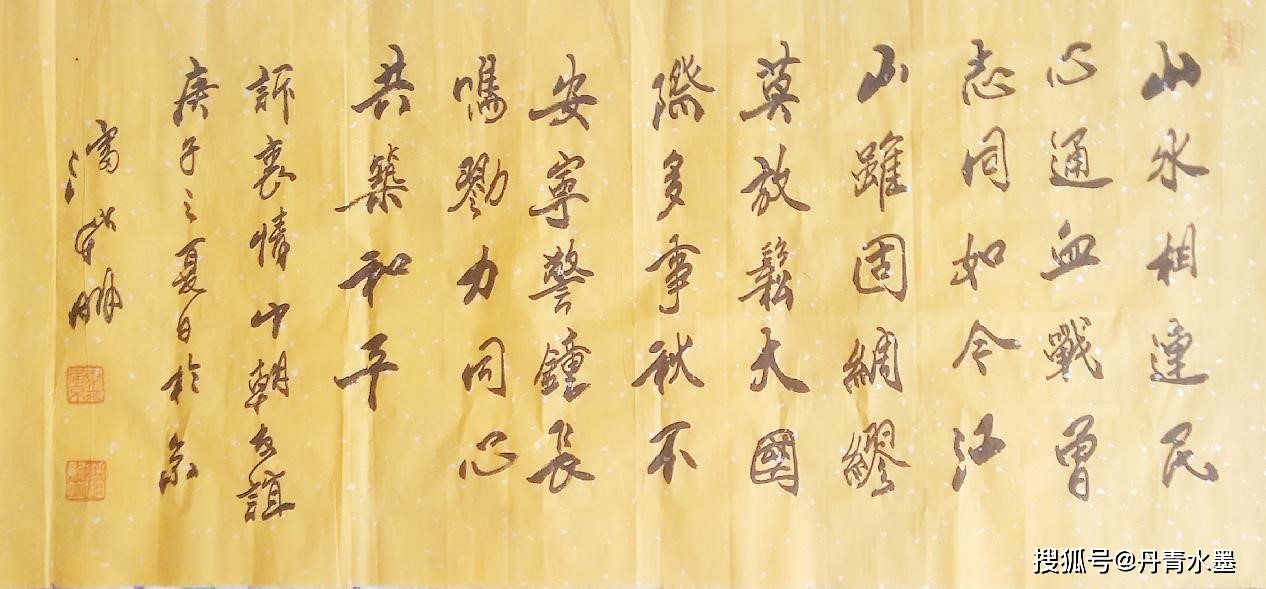 山水相連民
心通血戰曾
志同如今江
山雖固綢繆
莫放鬆大國
際多事秋不
安寧警鐘長
鳴勠力同心
共築和平
訴衷情中朝友誼
庚子之夏日於京
搜狐号@丹青水墨